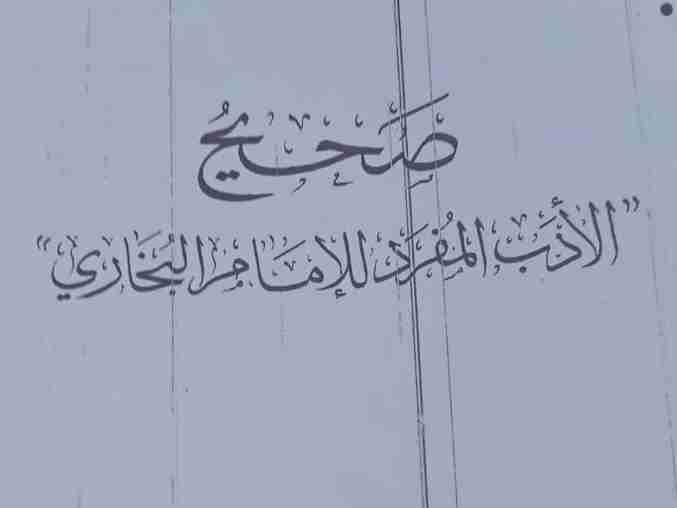 صَحِيحُ
"الأدَبُ المُفْرَد للإمَام البُخَاري"